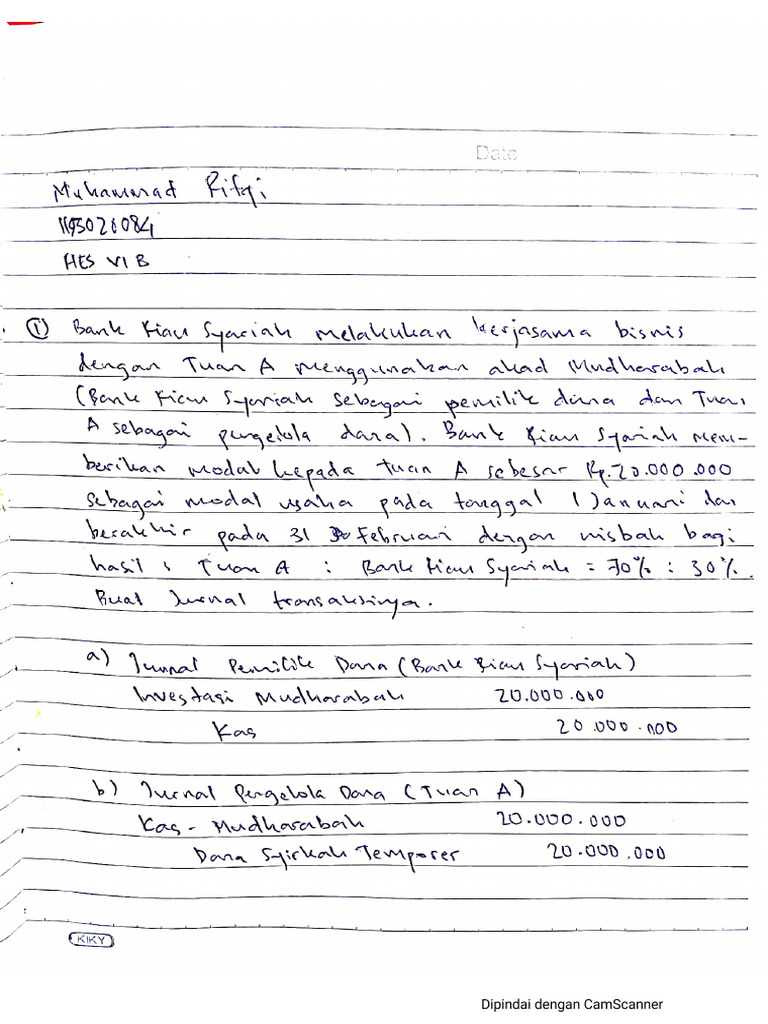 Date
Muhammad Rifqi
1193020084
HES VI B
① Bank Rian Syariah melakukan kerjasama bisnis
dengan Tuan A menggunakan akad Mudharabah
(Bank Rian Syariah sebagai pemilik dana dan Tuan
A sebagai pengelola dana). Bank Rian Syariah mem-
berikan modal kepada tuan A sebesar Rp.20.000.000
sebagai modal usaha pada tanggal 1 Januari dan
berakhir pada 31 Februari dengan nisbah bagi
hasil : Tuan A : Bank Rian Syariah = 70% : 30%.
Buat Jurnal transaksinya.
a) Jurnal Pemilik Dana (Bank Rian Syariah)
Investasi Mudharabah 20.000.000
Kas 20.000.000
b) Jurnal Pengelola Dana (Tuan A)
Kas - Mudharabah 20.000.000
Dana Syirkah Temporer 20.000.000
KIKY
Dipindai dengan CamScanner